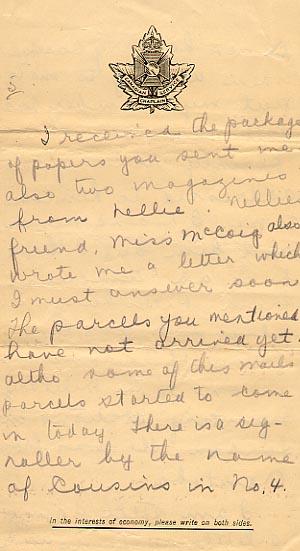 CHAPLAIN
I received the package
of papers you sent me
also two magazines
from Nellie. Nellies
friend, Miss McCoig also
wrote me a letter which
I must answer soon
The parcels you mentioned
have not arrived yet.
altho some of this mails
parcels started to come
in today. There is a sig-
naller by the name
of Cousins in No. 4.
In the interests of economy, please write on both sides.